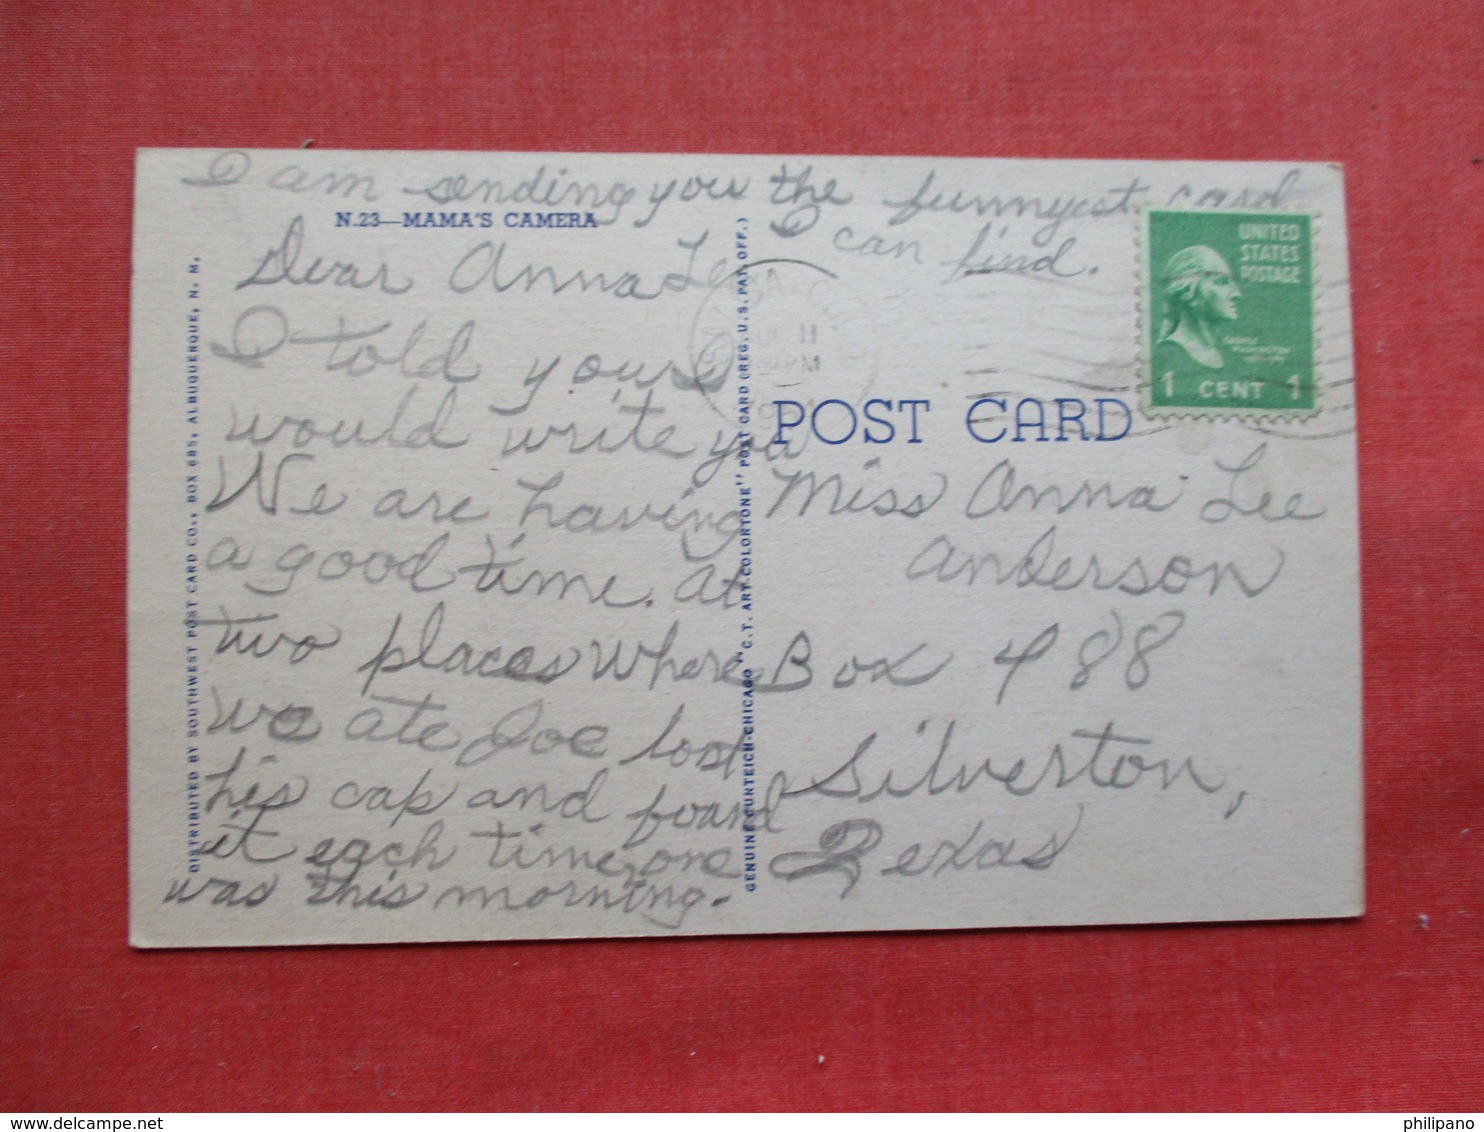 I am sending you the funnyest card
I can find.
N.23—MAMA'S CAMERA
Dear Anna Lee
I told you I
would write you
We are having
a good time. At
two places where
we ate Joe lost
his cap and found
it each time, one
was this morning.
DISTRIBUTED BY SOUTHWEST POST CARD CO., BOX 685, ALBUQUERQUE, N. M.
GENUINE CURTEICH-CHICAGO "C.T. ART-COLORTONE" POST CARD (REG. U.S. PAT. OFF.)
11
PM
UNITED
STATES
POSTAGE
GEORGE
WASHINGTON
1 CENT 1
POST CARD
Miss Anna Lee
Anderson
Box 488
Silverton,
Texas
philipano